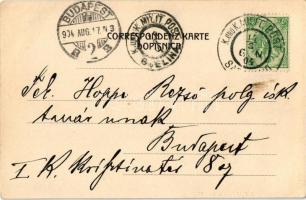 BUDAPEST
904 AUG. 17. N 3
B 2 B
K. UND K. MILIT. POST
BJELINA
CORRESPONDENZ-KARTE
DOPISNICA
K. UND K. MILIT. POST
Tek. Hoppe Rezső polg. isk.
tanár urnak
Budapest
I K. Krisztinatér 8 sz